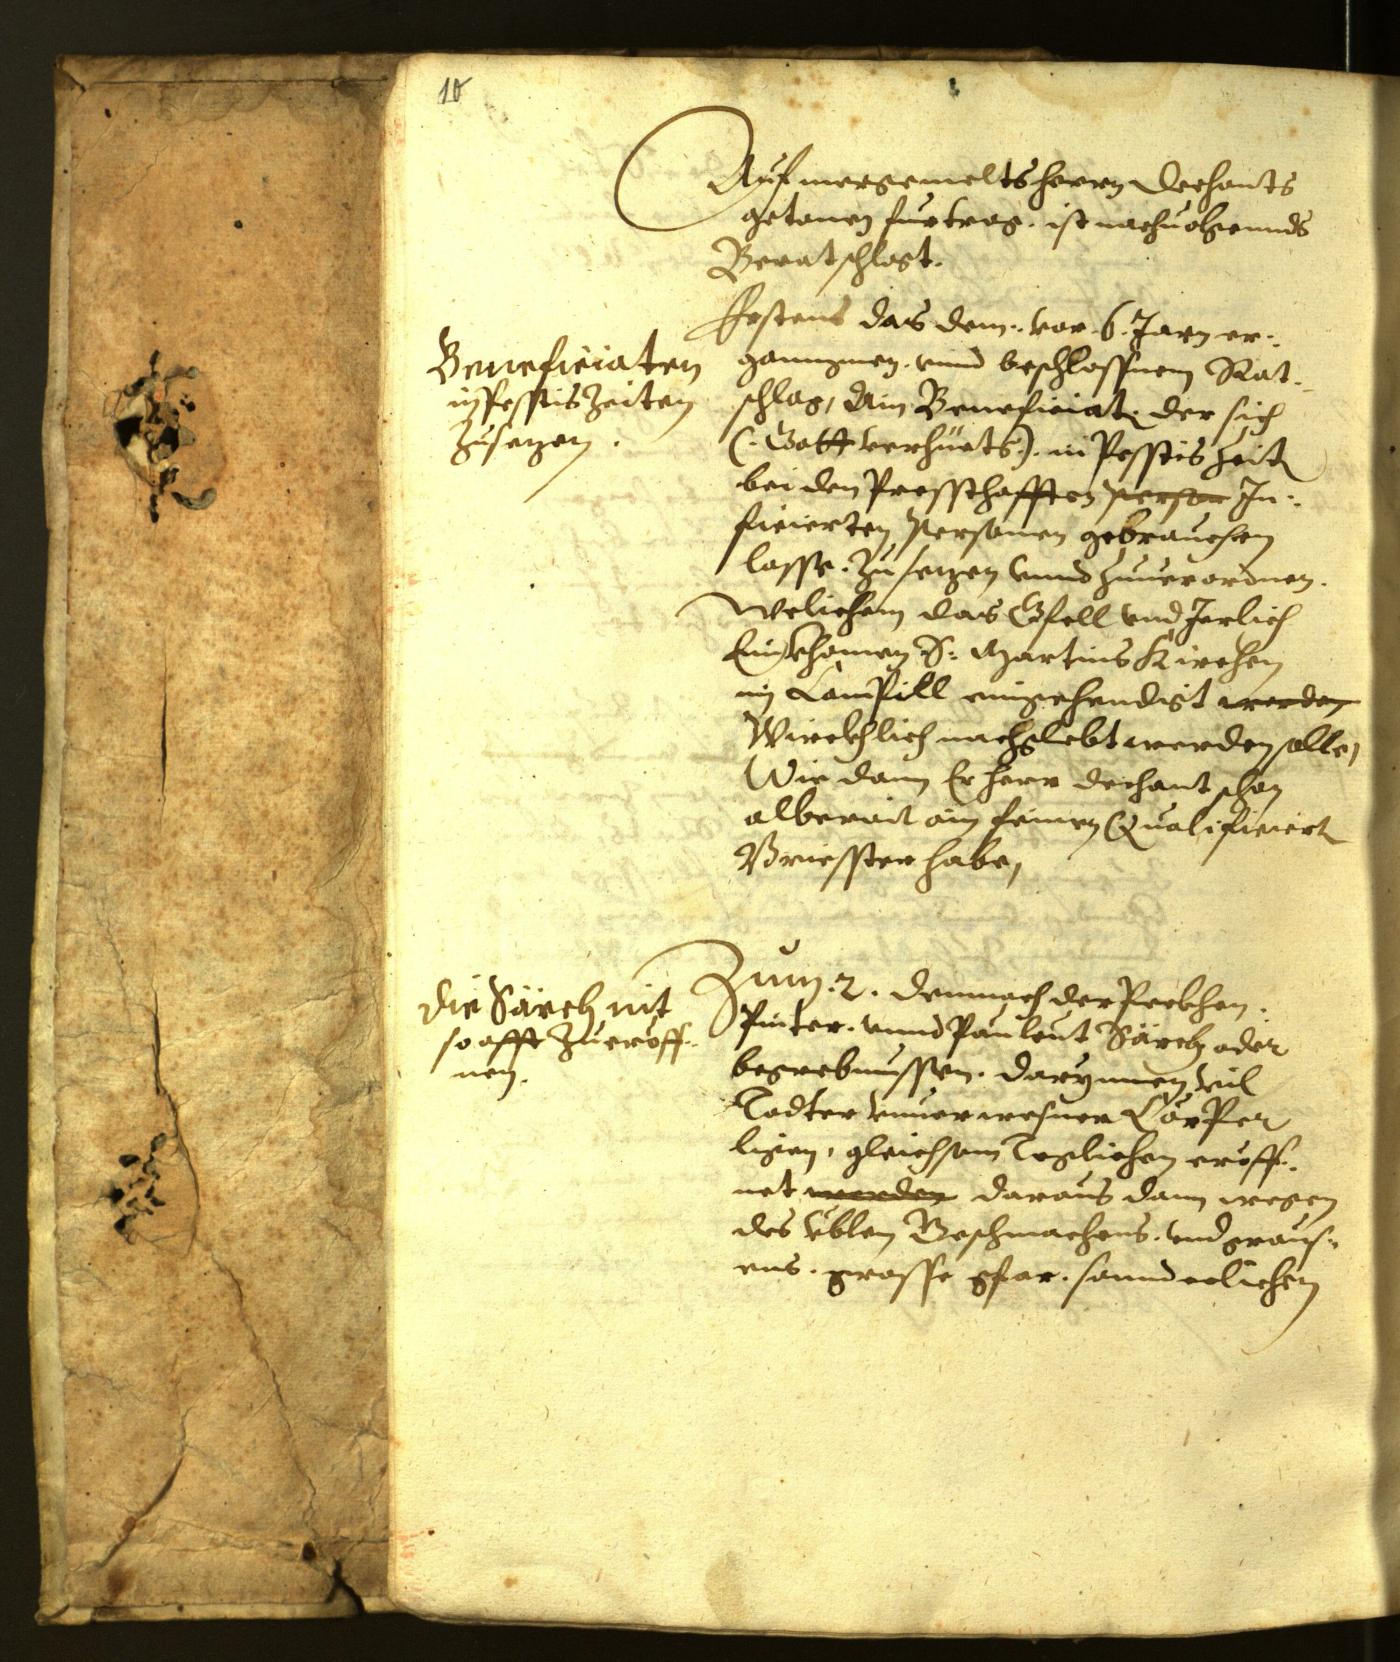 10
Auf mergemelts herrn Dechants
getonen furtrag. ist nachuolgennds
Beratschlagt.
Erstens das dem. vor. 6. Jarn er-
ganngnen. vnnd beschlossnem Rat-
schlag, Ain Beneficiat. der sich
(. Gott verhüets.). in Pesstis Zeit
bei den Pressthafften person In-
ficierten personen gebrauchen
lasse. zusetzen vnnd zuuerordnen.
Welichem das Gfell vnd Jerlich
Einkhomen S: Martins Kirchen
in Campill eingehendigt werden
Wirckhlich nachglebt werden solle,
Wie dann Er herr dechant schon
alberait ain feinen Qualificiert
Briesster habe,
Beneficiaten
in Pesstis Zeiten
zusetzen.
Zum. 2. demnach der Peckhen.
Pinter. vnnd Pauleut Särch oder
begrebnussen. darynnen vil
Todter vnuerwesner Cörper
ligen, gleichsam Teglichen eröff-
net werden daraus dann wegen
des Üblen Geschmachens. vnd graus-
ens. grosse gfar. sonnderlichen
die Särch nit
so offt zueröff-
nen.